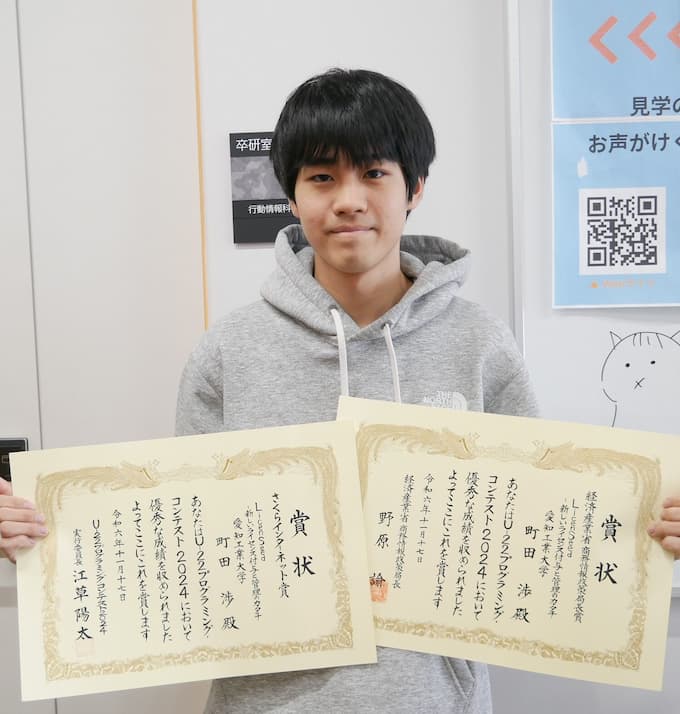 卒研室
行動情報科
見学の
お声がけく
THE
NORTH
賞状
さくらインターネット賞
LicenSeed
-新しいライセンス付与と管理のカタチ
愛知工業大学
町田 渉 殿
あなたはU-22プログラミング・
コンテスト2024において
優秀な成績を収められました
よってここにこれを賞します
令和六年十一月十七日
U-22プログラミングコンテスト2024
実行委員長 江草陽太
賞状
経済産業省 商務情報政策局長賞
LicenSeed
-新しいライセンス付与と管理のカタチ
愛知工業大学
町田 渉 殿
あなたはU-22プログラミング・
コンテスト2024において
優秀な成績を収められました
よってここにこれを賞します
令和六年十一月十七日
経済産業省 商務情報政策局長
野原 諭